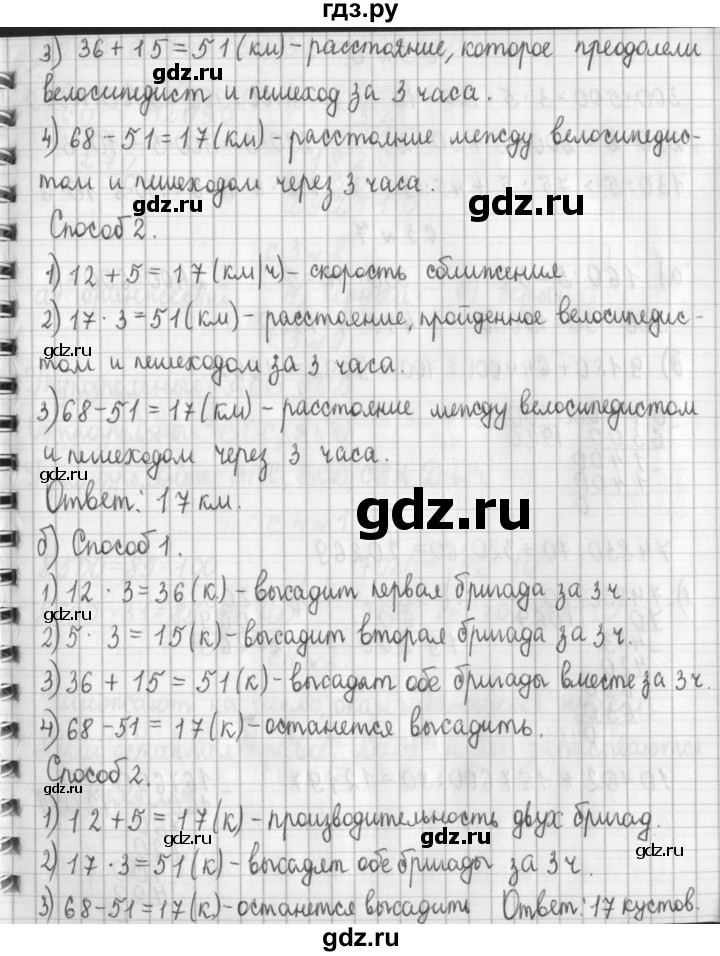 гдз.ру
3) 36 + 15 = 51 (км) - расстояние, которое преодолели
gdz.ru
велосипедист и пешеход за 3 часа.
4) 68 - 51 = 17 (км) - расстояние между велосипедис-
том и пешеходом через 3 часа.
gdz.ru
Способ 2.
1) 12 + 5 = 17 (км/ч) - скорость сближения
2) 17 · 3 = 51 (км) - расстояние, пройденное велосипедис-
том и пешеходом за 3 часа.
3) 68 - 51 = 17 (км) - расстояние между велосипедистом
и пешеходом через 3 часа.
gdz.ru
Ответ: 17 км.
gdz.ru
б) Способ 1.
1) 12 · 3 = 36 (к) - высадит первая бригада за 3 ч.
2) 5 · 3 = 15 (к) - высадит вторая бригада за 3 ч.
3) 36 + 15 = 51 (к) - высадят обе бригады вместе за 3 ч.
4) 68 - 51 = 17 (к) - останется высадить.
Способ 2.
gdz.ru
1) 12 + 5 = 17 (к) - производительность двух бригад.
gdz.ru
2) 17 · 3 = 51 (к) - высадят обе бригады за 3 ч.
gdz.ru
3) 68 - 51 = 17 (к) - останется высадить Ответ: 17 кустов.
gdz.ru